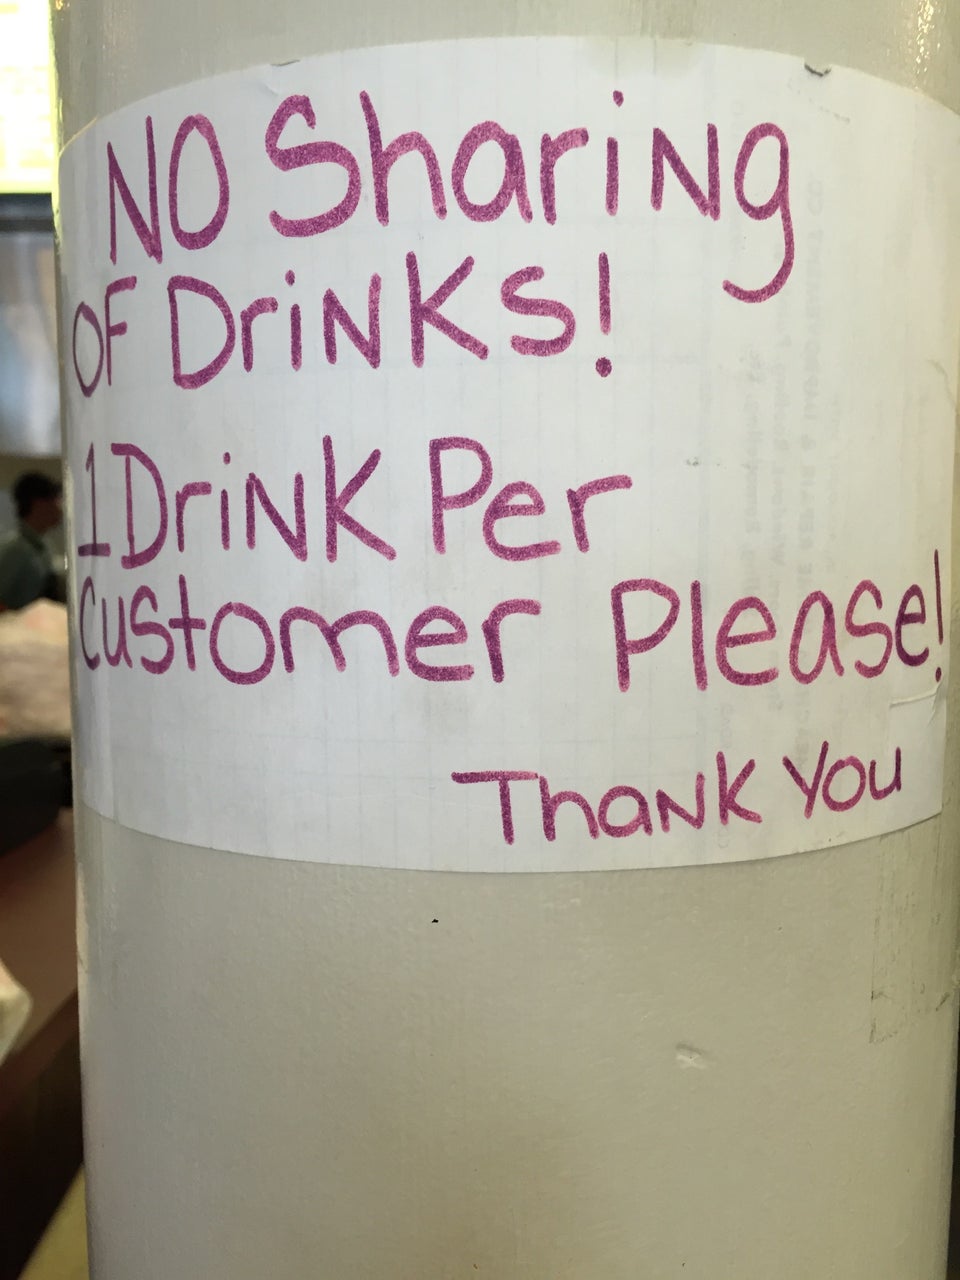 NO Sharing
OF Drinks!
1 Drink Per
Customer Please!
Thank You